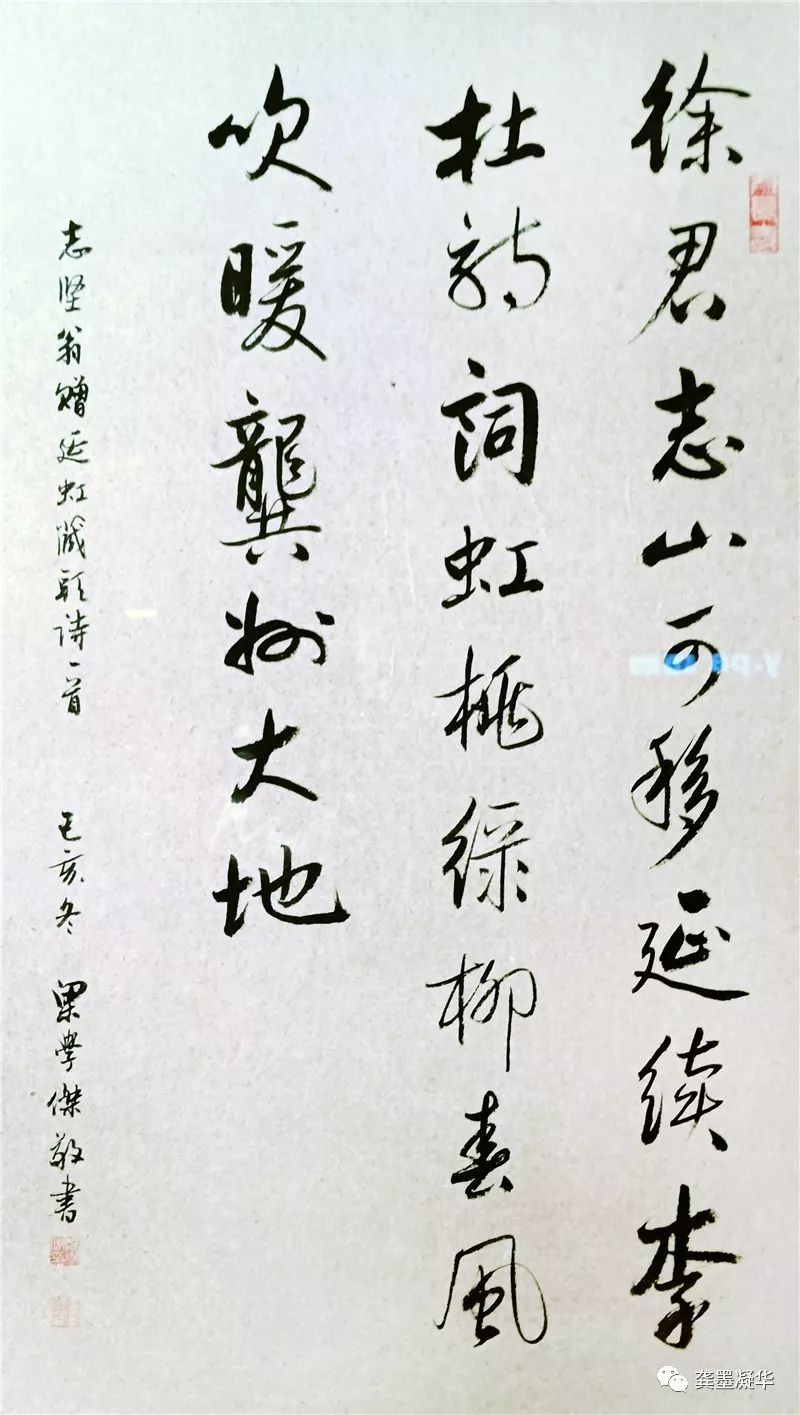 徐君志山可移延续李
杜韵词虹桃绿柳春风
吹暖龔州大地
志坚翁赠延虹藏头诗一首 己亥冬 梁學傑敬书
龚墨凝华